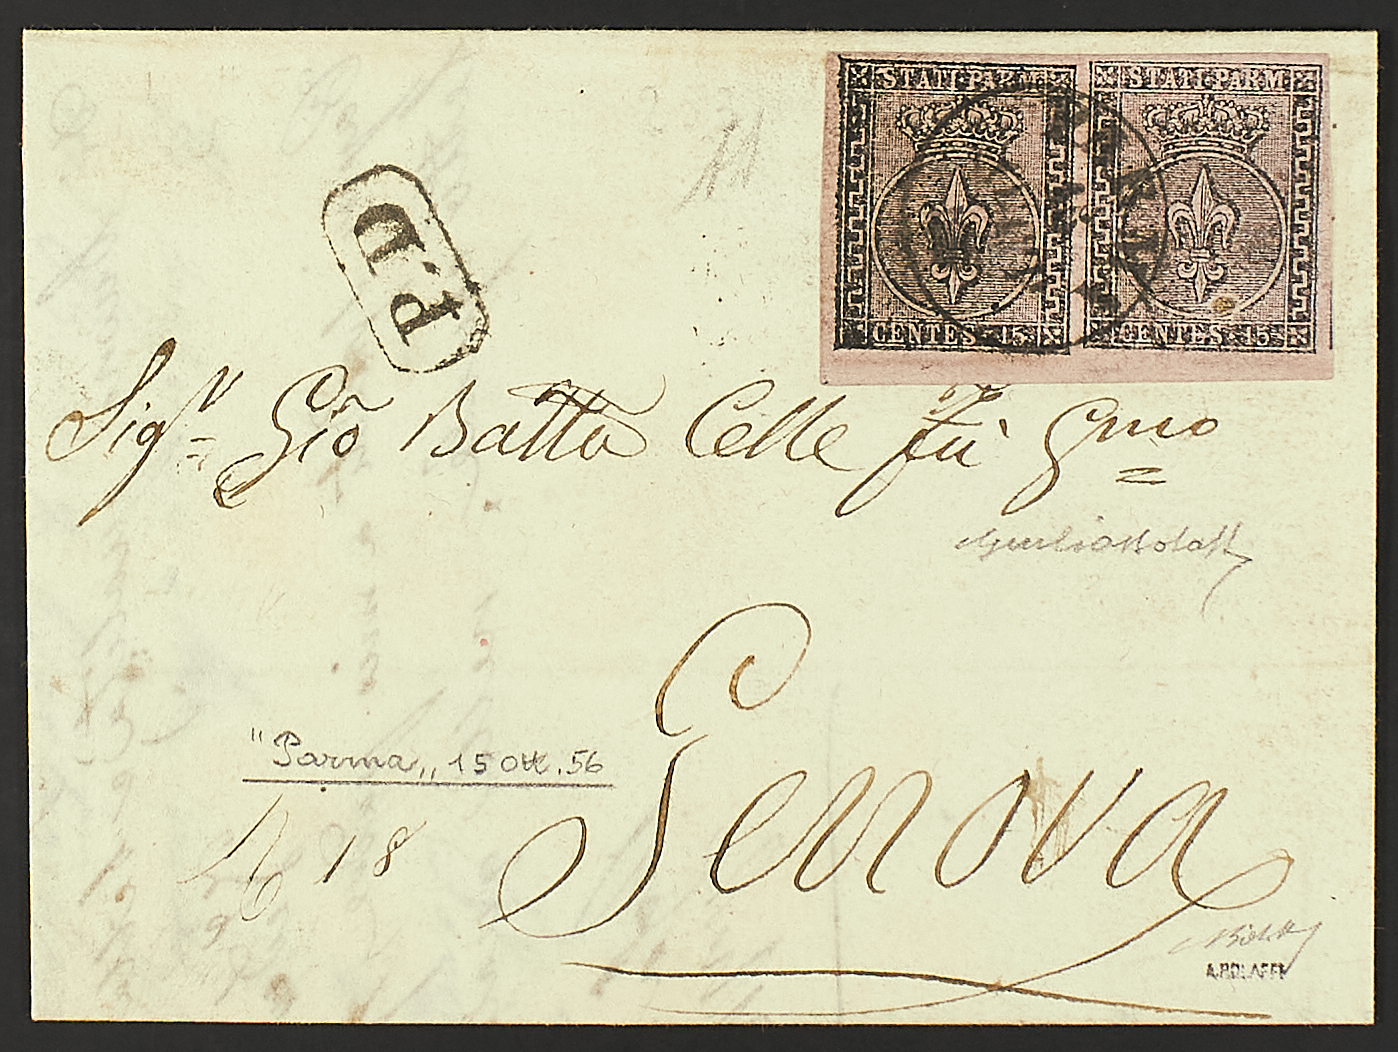 STATI PARM STATI PARM
CENTES. 15 CENTES. 15
P.D
Sig.r Gio Batta Celle fù Gmo
Giulio Bolaffi
"Parma„ 15 Ott. 56
18
Genova
A. BOLAFFI